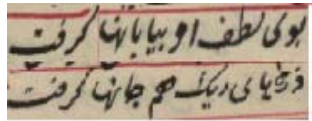 بوی لطف او بیابانها کرفت
ذرهای ریک هم جانها کرفت